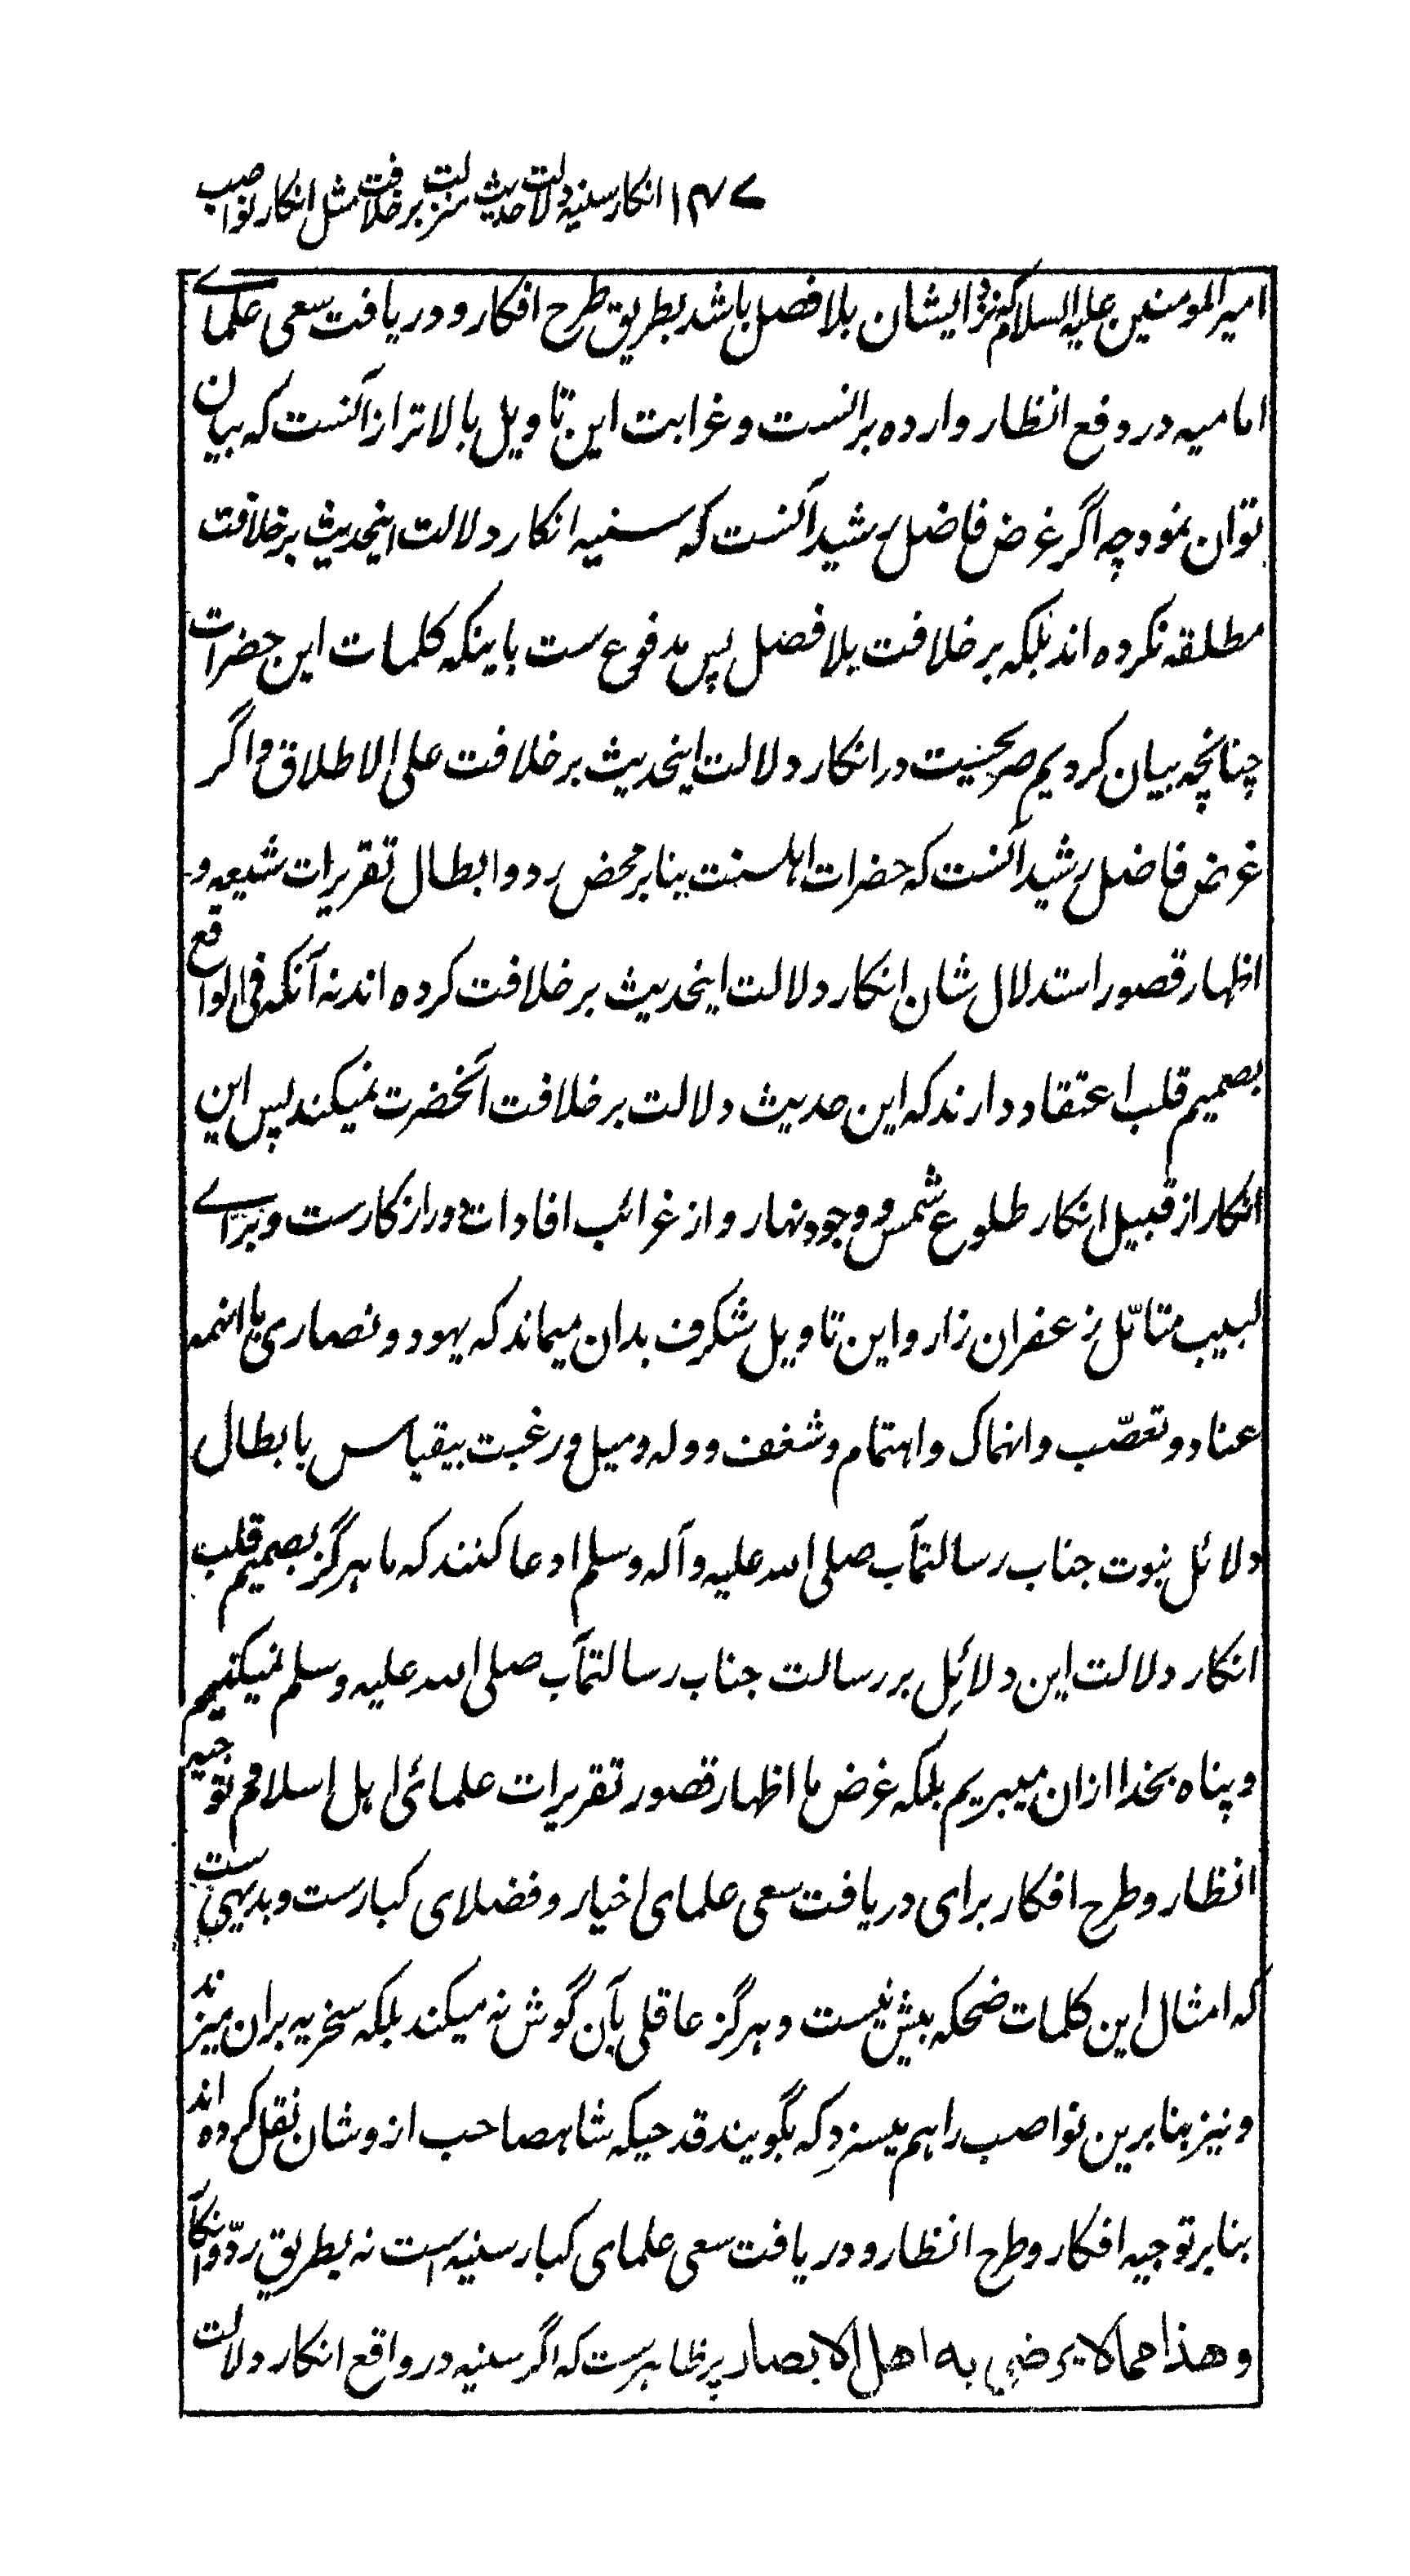 ۱۴۷ انکار سنیه دلالت حدیث منزلت بر خلافت مثل انکار نواصب
امیرالمومنین علیه السلام که نزد ایشان بلا فصل باشد بطریق طرح افکار و دریافت سعی علمای
امامیه در دفع انظار وارده برانست و غرابت این تاویل بالاتر از آنست که بیان
توان نمود چه اگر غرض فاضل رشید آنست که سنیه انکار دلالت اینحدیث بر خلافت
مطلقه نکرده اند بلکه بر خلافت بلا فصل پس مدفوع ست باینکه کلمات این حضرات
چنانچه بیان کردیم صریحست در انکار دلالت اینحدیث بر خلافت علی الاطلاق و اگر
غرض فاضل رشید آنست که حضرات اهلسنت بنابر محض رد و ابطال تقریرات شیعه و
اظهار قصور استدلال شان انکار دلالت اینحدیث بر خلافت کرده اند نه آنکه فی الواقع
بصمیم قلب اعتقاد دارند که این حدیث دلالت بر خلافت آنحضرت نمیکند پس این
انکار از قبیل انکار طلوع شمس و وجود نهار و از غرائب افادات دور از کارست و برای
لبیب متامّل زعفران زار و این تاویل شگرف بدان میماند که یهود و نصاری با اینهمه
عناد و تعصّب و انهماک و اهتمام و شغف و وله و میل و رغبت بیقیاس بابطال
دلائل نبوت جناب رسالتمآب صلی الله علیه و آله و سلم ادعا کنند که ما هرگز بصمیم قلب
انکار دلالت این دلائل بر رسالت جناب رسالتمآب صلی الله علیه و سلم نمیکنیم
و پناه بخدا ازان میبریم بلکه غرض ما اظهار قصور تقریرات علمائی اهل اسلام و توجیه
انظار و طرح افکار برای دریافت سعی علمای اخیار و فضلای کبارست و بدیهی ست
که امثال این کلمات ضحکه بیش نیست و هرگز عاقلی بآن گوش نه میکند بلکه سخریه بران میزند
و نیز بنا برین نواصب را هم میسزد که بگویند قدحیکه شاهصاحب از وشان نقل کرده اند
بنا بر توجیه افکار و طرح انظار و دریافت سعی علمای کبار سنیه است نه بطریق ردّ و انکار
و هذا مما لا یرضی به اهل الابصار پرظاهرست که اگر سنیه در واقع انکار دلالت